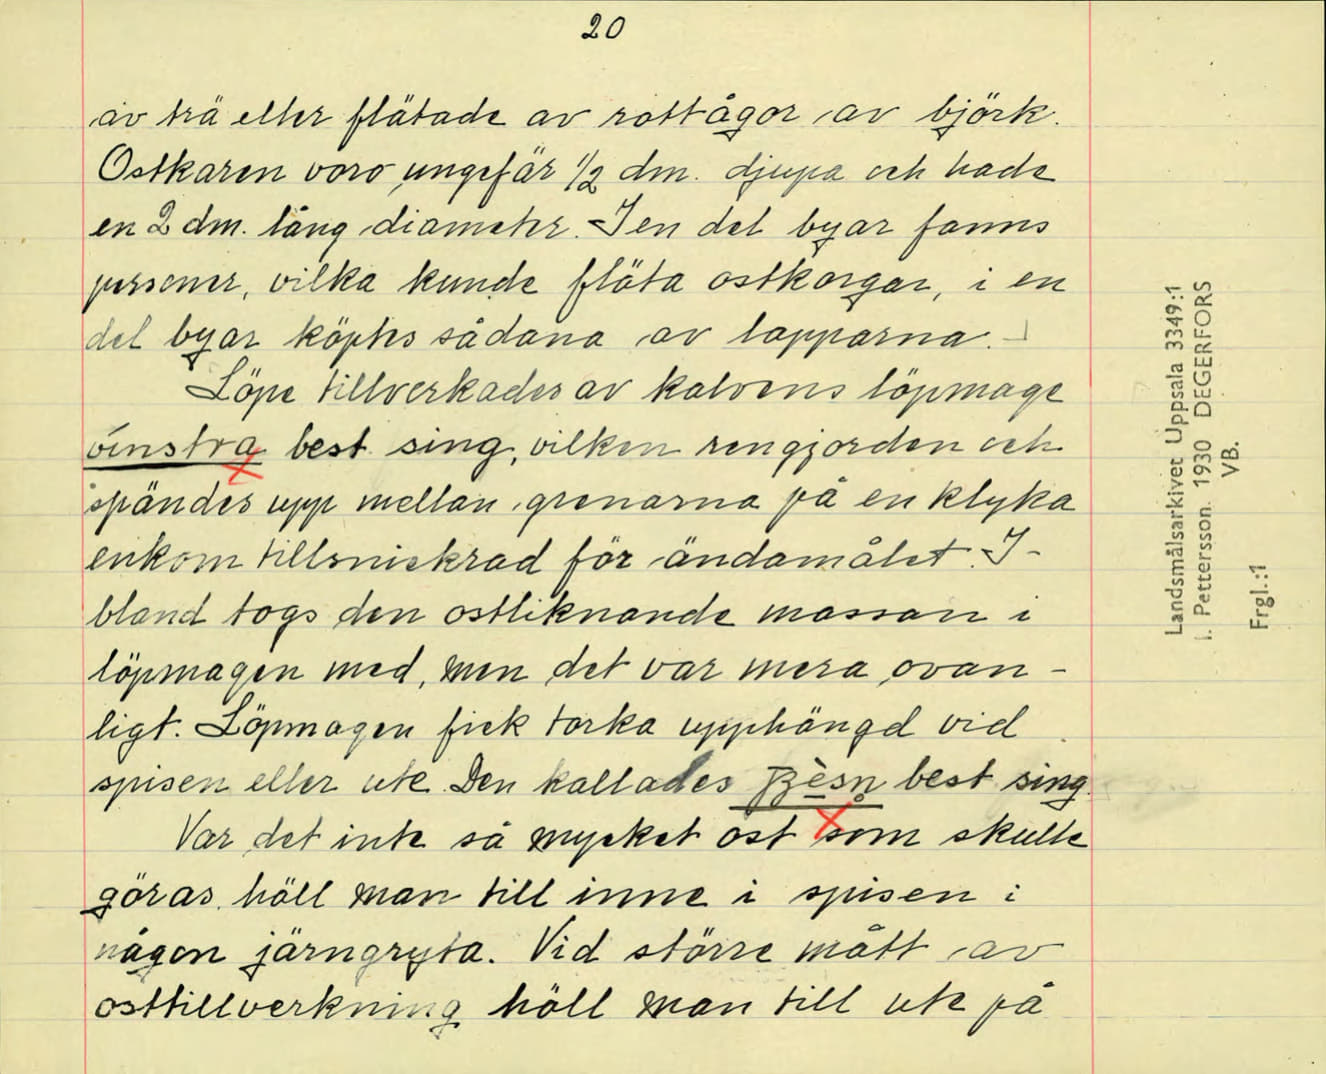 20
av trä eller flätade av rottågor av björk.
Ostkaren voro ungefär 1/2 dm. djupa och hade
en 2 dm. lång diameter. I en del byar fanns
personer, vilka kunde fläta ostkorgar, i en
del byar köptes sådana av lapparna.
Löpe tillverkades av kalvens löpmage
vinstra best. sing, vilken rengjorden och
spändes upp mellan grenarna på en klyka
enkom tillsnickrad för ändamålet. I-
bland togs den ostliknande massan i
löpmagen med, men det var mera ovan-
ligt. Löpmagen fick torka upphängd vid
spisen eller ute. Den kallades best sing.
Var det inte så mycket ost som skulle
göras, höll man till inne i spisen i
någon järngryta. Vid större mått av
osttillverkning höll man till ute på
Landsmålsarkivet Uppsala 3349:1
I. Pettersson. 1930 DEGERFORS
VB.
Frgl.:1